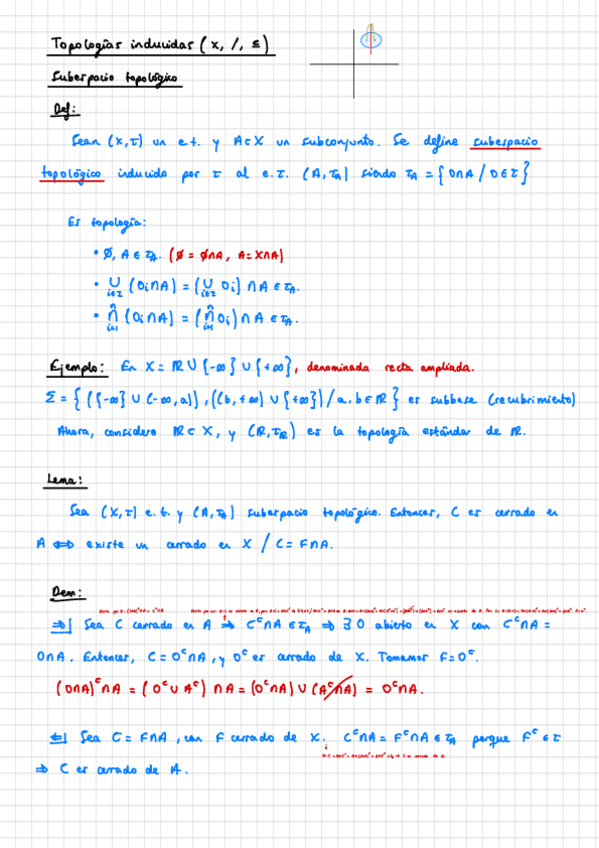 Topologías inducidas (x, /, ≤)
Subespacio topológico
Def:
Sean (X,τ) un e.t. y A⊂X un subconjunto. Se define subespacio
topológico inducido por τ al e.τ. (A, τ_A) siendo τ_A = {O∩A / O∈τ}
Es topología:
• ∅, A ∈ τ_A. (∅ = ∅∩A, A = X∩A)
• ∪_{i∈I} (O_i∩A) = (∪_{i∈I} O_i) ∩ A ∈ τ_A.
• ∩_{i=1}^n (O_i∩A) = (∩_{i=1}^n O_i) ∩ A ∈ τ_A.
Ejemplo: En X = ℝ ∪ {-∞} ∪ {+∞}, denominada recta ampliada.
Σ = { ({-∞} ∪ (-∞, a)), ((b, +∞) ∪ {+∞}) / a, b ∈ ℝ } es subbase (recubrimiento)
Ahora, considero ℝ ⊂ X, y (ℝ, τ_ℝ) es la topología estándar de ℝ.
Lema:
Sea (X,τ) e.t. y (A, τ_A) subespacio topológico. Entonces, C es cerrado en
A ⟺ existe un cerrado en X / C = F∩A.
Dem:
⇒| Sea C cerrado en A ⇒ C^c∩A ∈ τ_A ⇒ ∃ O abierto en X con C^c∩A =
O∩A. Entonces, C = O^c∩A, y O^c es cerrado de X. Tomamos F = O^c.
(O∩A)^c∩A = (O^c ∪ A^c) ∩ A = (O^c∩A) ∪ (A^c∩A) = O^c∩A.
⇐| Sea C = F∩A, con F cerrado de X. C^c∩A = F^c∩A ∈ τ_A porque F^c ∈ τ
⇒ C es cerrado de A.